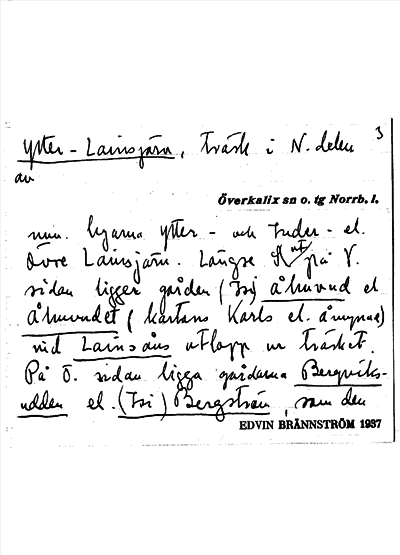 3
Ytter-Lainsjärv, träsk i N. delen
av
Överkalix sn o. tg Norrb. l.
mun. byarna Ytter- och Inder- el.
Övre Lainsjärv. Längse N ut på V.
sidan ligger gården (Isi) åhuvud el
åhuvudet (kartans Karls el. åmynnad)
vid Lainsåns utlopp ur träsket.
På Ö. sidan ligga gårdarna Bergviks-
udden el. (Isi) Bergström, som den
EDVIN BRÄNNSTRÖM 1937